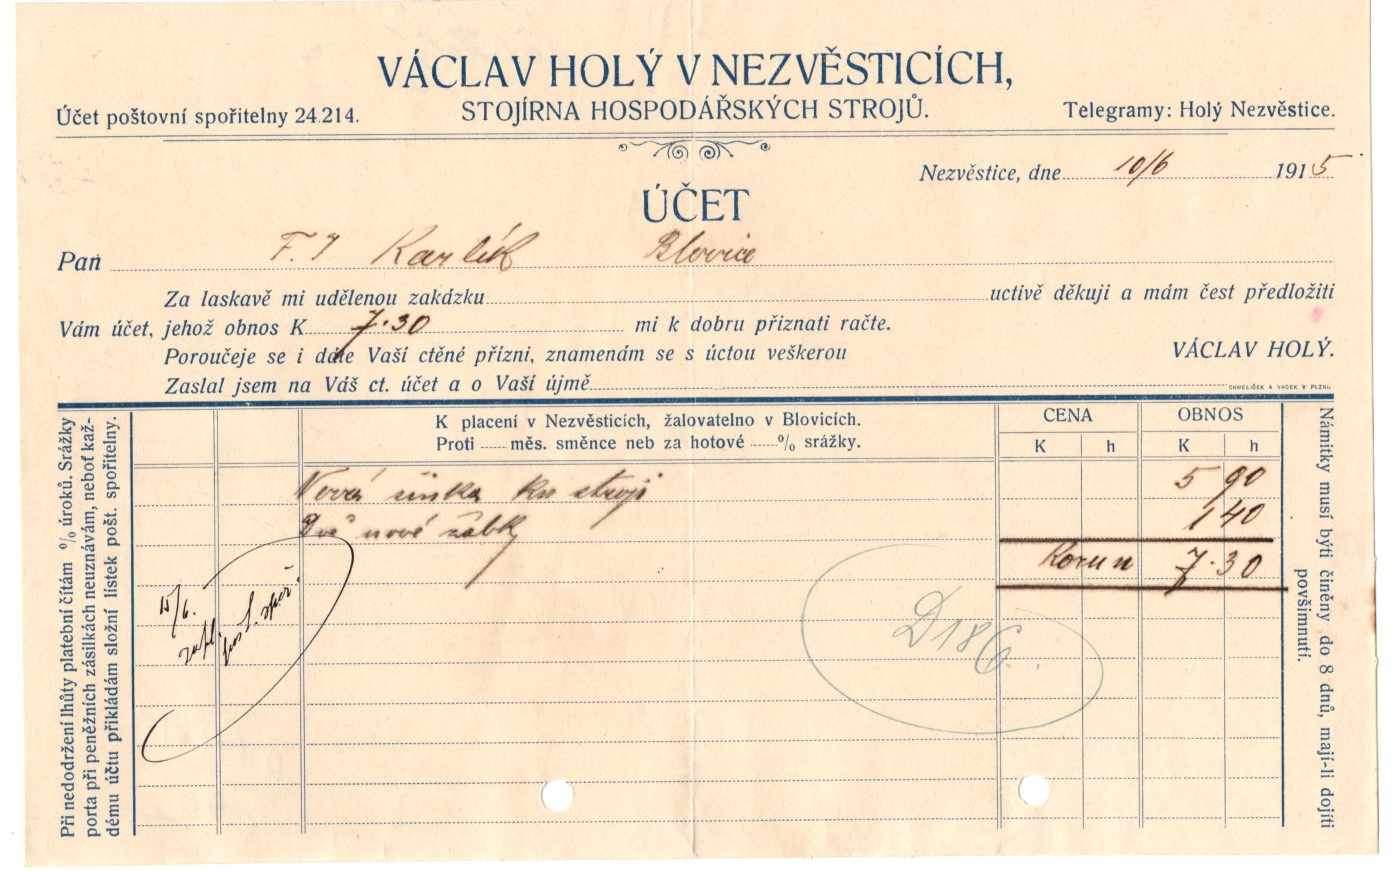 VÁCLAV HOLÝ V NEZVĚSTICÍCH,
Účet poštovní spořitelny 24.214.
STOJÍRNA HOSPODÁŘSKÝCH STROJŮ.
Telegramy: Holý Nezvěstice.
Nezvěstice, dne 10/6 1915
ÚČET
Pan F. J Karlík Blovice
Za laskavě mi udělenou zakázku uctivě děkuji a mám čest předložiti
Vám účet, jehož obnos K 7·30 mi k dobru přiznati račte.
Poroučeje se i dále Vaší ctěné přízni, znamenám se s úctou veškerou VÁCLAV HOLÝ.
Zaslal jsem na Váš ct. účet a o Vaší újmě
CHMELÍČEK A VACEK V PLZNI.
K placení v Nezvěsticích, žalovatelno v Blovicích.
Proti měs. směnce neb za hotové % srážky.
CENA OBNOS
K h K h
Nová ku stroji 5 90
Dvě nové 1 40
Korun 7·30
15/6.
zapl.
D 18/6.
Při nedodržení lhůty platební čítám % úroků. Srážky
porta při peněžních zásilkách neuznávám, neboť kaž-
dému účtu přikládám složní lístek pošt. spořitelny.
Námitky musí býti činěny do 8 dnů, mají-li dojíti
povšimnutí.